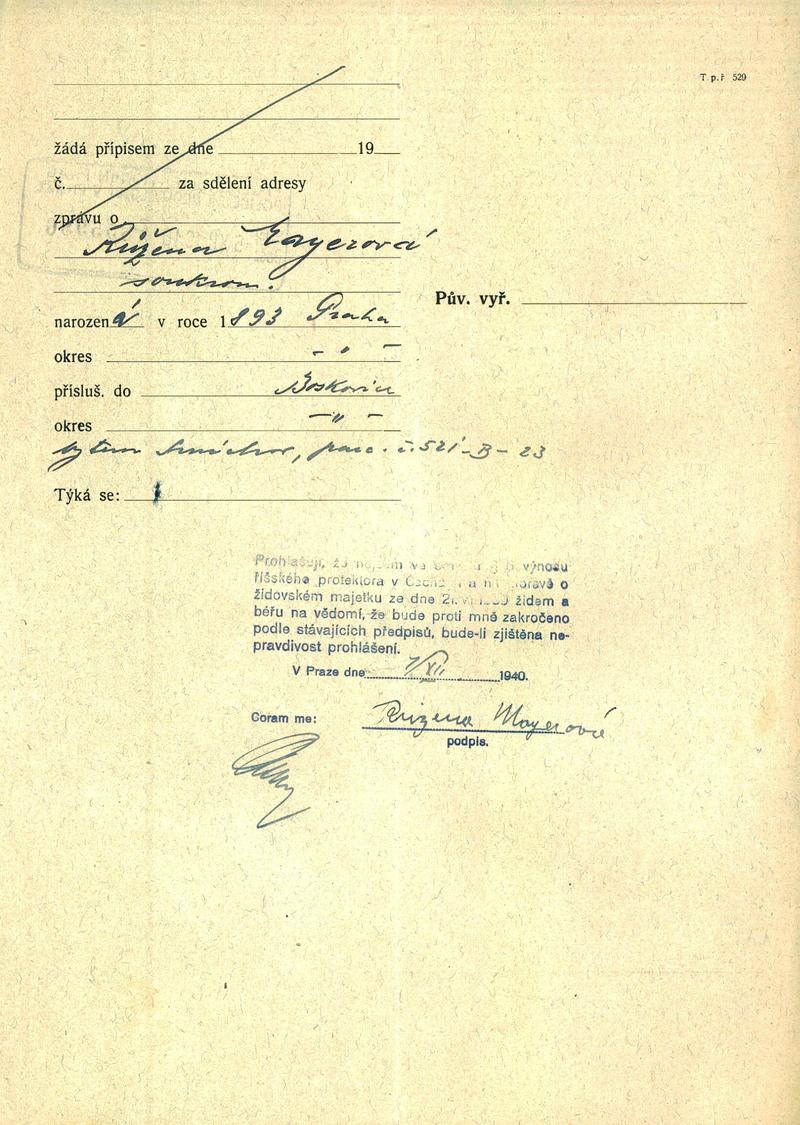 T. p. ř. 529
žádá přípisem ze dne 19
č. za sdělení adresy
zprávu o
Růžena Mayerová
soukrom.
narozená v roce 1893 Praha
okres - " -
Pův. vyř.
přísluš. do Boskovice
okres - " -
bytem Smíchov, parc. č. 521-B-23
Týká se:
Prohlašuji, že nejsem ve výnosu
říšského protektora v Čechách a na Moravě o
židovském majetku ze dne židem a
béřu na vědomí, že bude proti mně zakročeno
podle stávajících předpisů, bude-li zjištěna ne-
pravdivost prohlášení.
V Praze dne 7/XII. 1940.
Coram me: Růžena Mayerová
podpis.